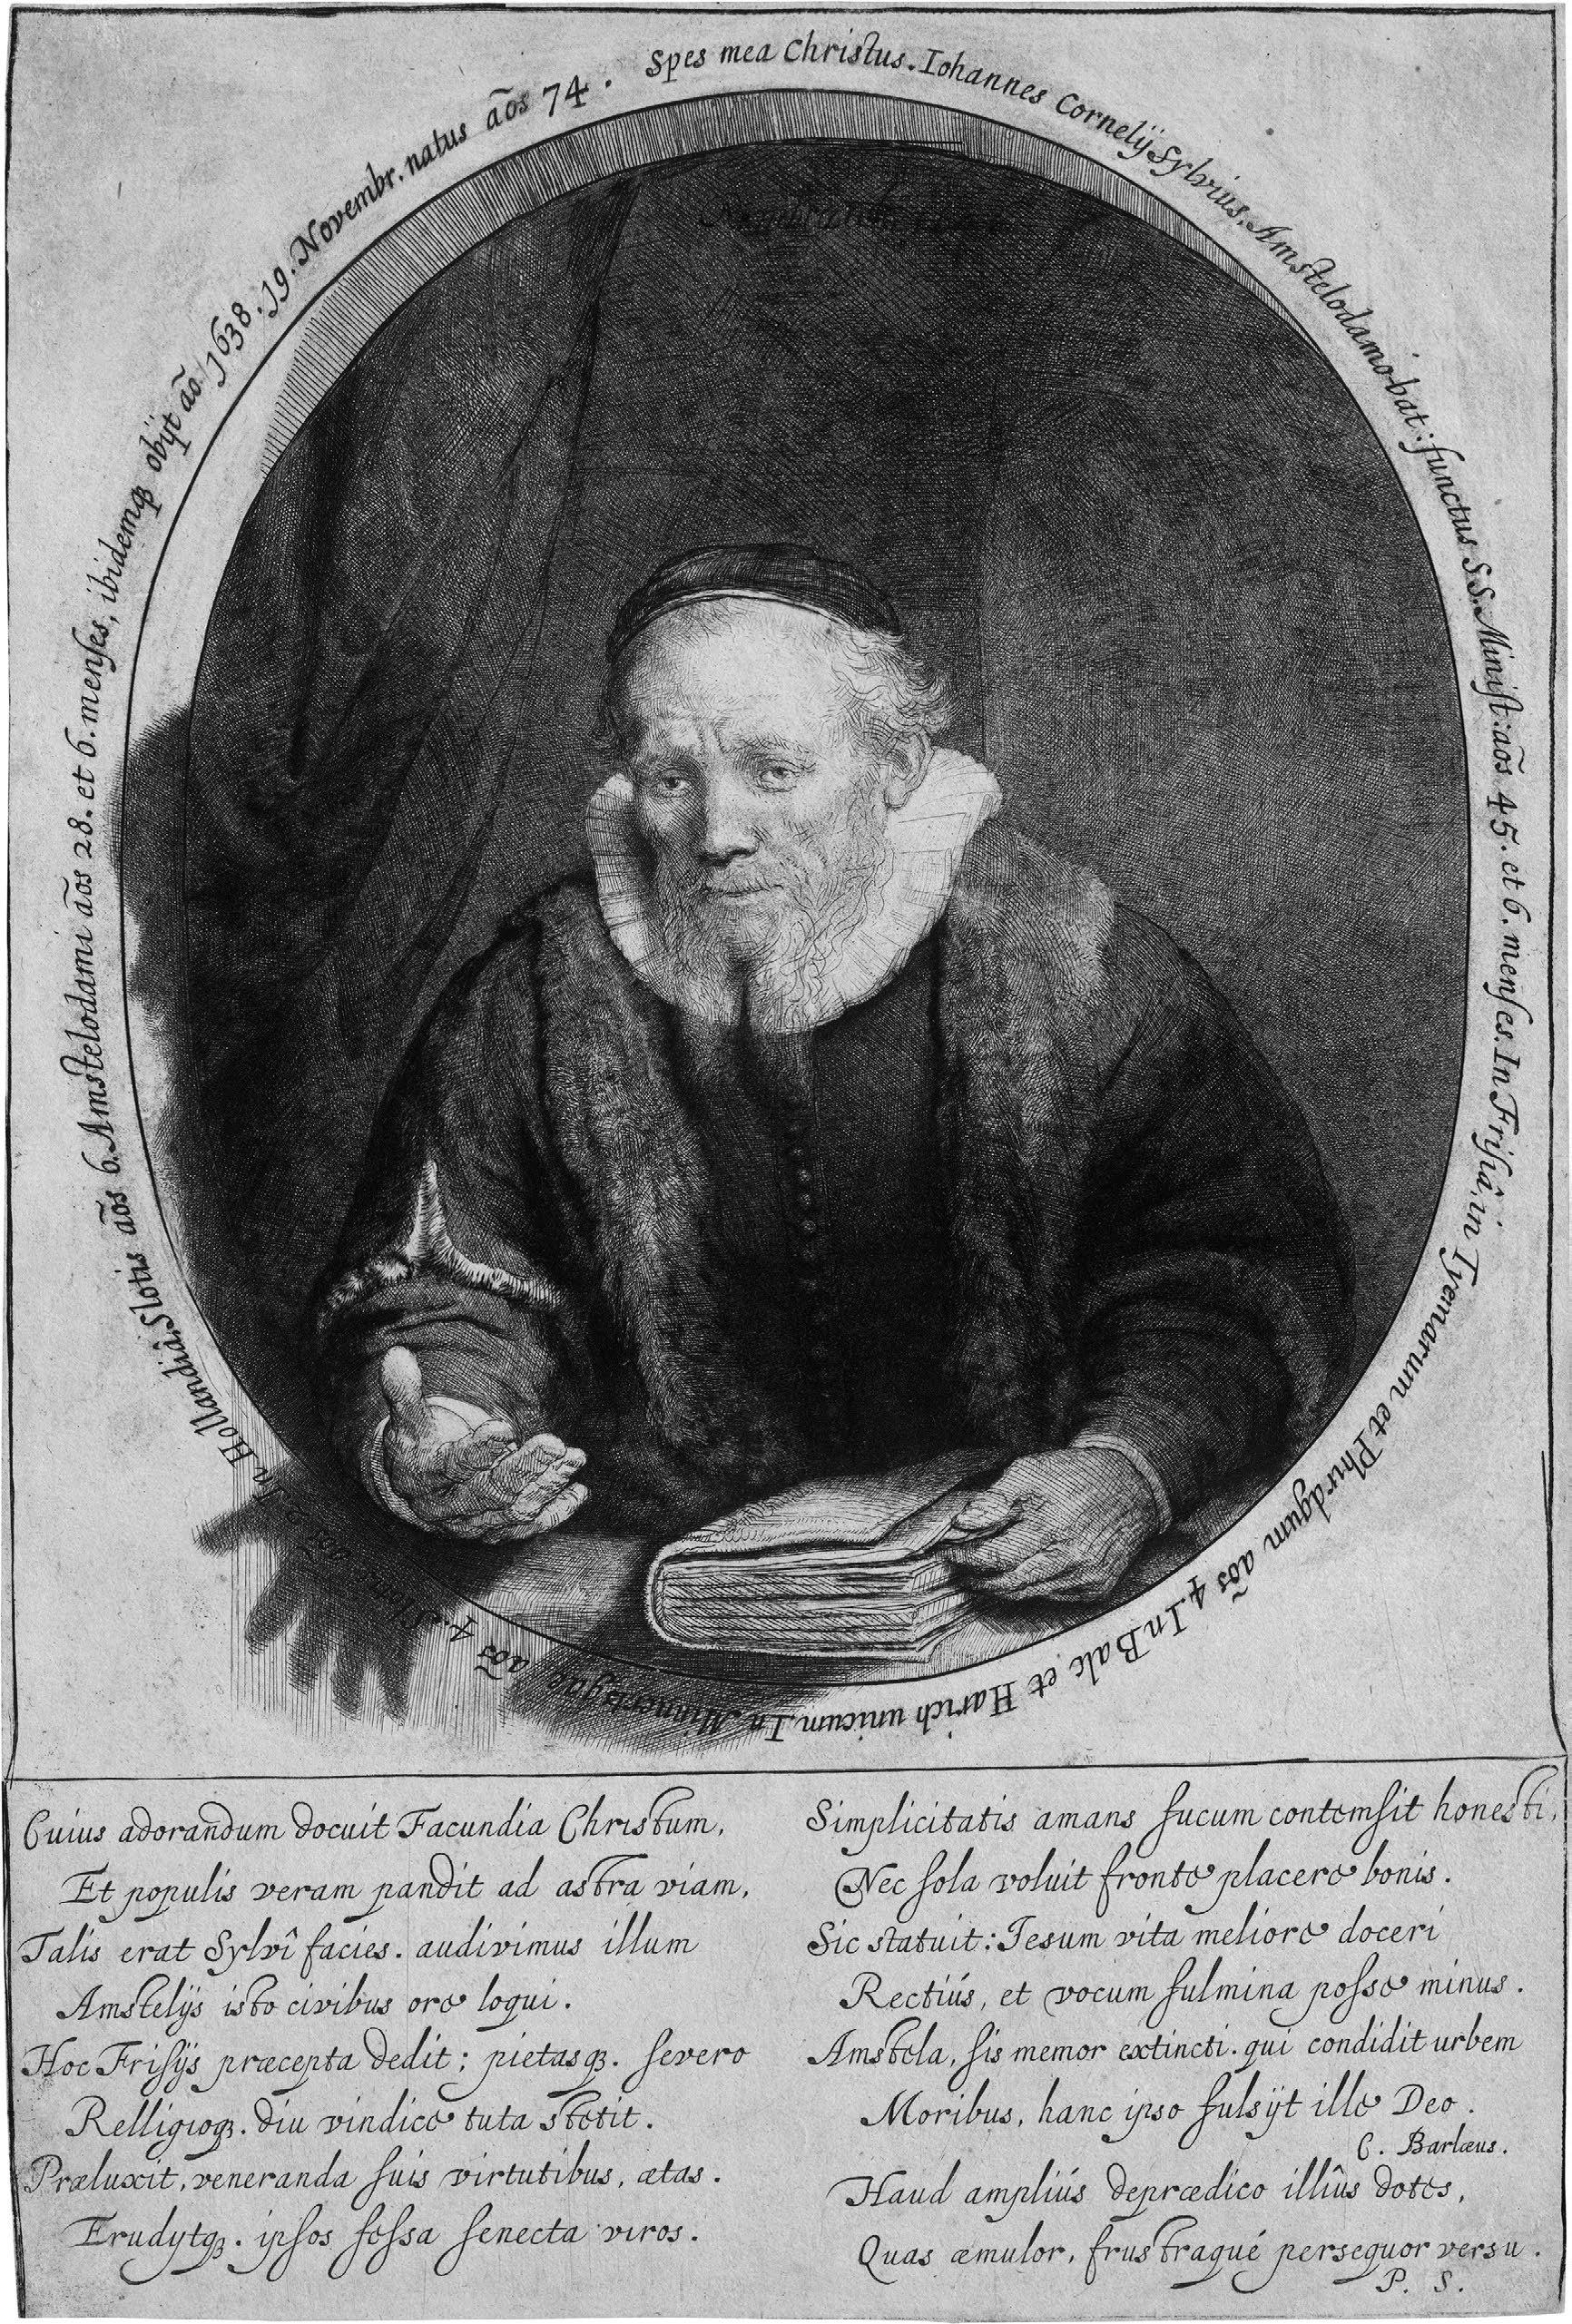 Spes mea Christus. Iohannes Cornelÿ Sylvius, Amstelodamo-bat: functus S S. Minist: ao͂s 45. et 6. menses. In Frisiâ, in Tyemarum et Phirdgum ao͂s 4. In Balc et Harich unicum. In Minnertsgae ao͂s 4. Slotis ao͂s 6. Amstelodami ao͂s 28. et 6. menses, ibidemqꝫ obÿt ao͂ 1638. 19. Novembr. natus ao͂s 74.
Cuius adorandum docuit Facundia Christum,
Et populis veram pandit ad astra viam,
Talis erat Sylvî facies. audivimus illum
Amstelÿs isto civibus ore loqui.
Hoc Frisÿs præcepta dedit; pietasqꝫ. severo
Relligioqꝫ. diu vindice tuta stetit.
Præluxit, veneranda suis virtutibus, ætas.
Erudytqꝫ. ipsos fessa senecta viros.
Simplicitatis amans fucum contemsit honesti,
Nec sola voluit fronte placere bonis.
Sic statuit: Jesum vita meliore doceri
Rectiús, et vocum fulmina posse minus.
Amstela, sis memor extincti. qui condidit urbem
Moribus, hanc ipso fulsÿt ille Deo.
C. Barlæus.
Haud ampliús deprædico illîus dotes,
Quas æmulor, frustraqué persequor versu.
P. S.